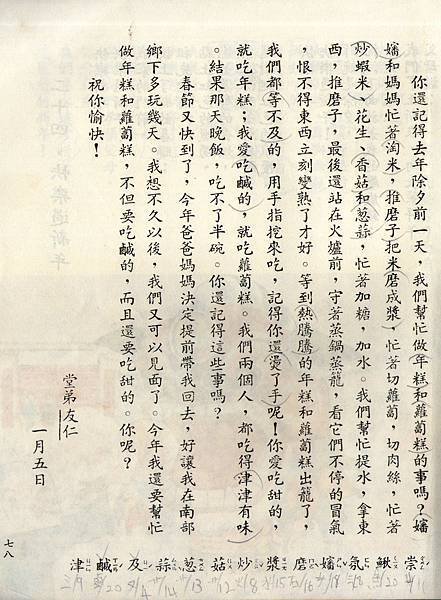 你還記得去年除夕前一天，我們幫忙做年糕和蘿蔔糕的事嗎？嬸
嬸和媽媽忙著淘米，推磨子把米磨成漿，忙著切蘿蔔，切肉絲，忙著
炒蝦米、花生、香菇和蔥蒜，忙著加糖，加水。我們幫忙提水，拿東
西，推磨子，最後還站在火爐前，守著蒸鍋蒸籠，看它們不停的冒氣
，恨不得東西立刻變熟了才好。等到熱騰騰的年糕和蘿蔔糕出籠了，
我們都等不及的，用手指挖來吃，記得你還燙了手呢！你愛吃甜的，
就吃年糕；我愛吃鹹的，就吃蘿蔔糕。我們兩個人，都吃得津津有味
。結果那天晚飯，吃不了半碗。你還記得這些事嗎？
春節又快到了，今年爸爸媽媽決定提前帶我回去，好讓我在南部
鄉下多玩幾天。我想不久以後，我們又可以見面了。今年我還要幫忙
做年糕和蘿蔔糕，不但要吃鹹的，而且還要吃甜的。你呢？
祝你愉快！
堂弟友仁
一月五日
七八
崇 鍬 氛 嬸 磨 漿 炒 菇 蔥 蒜 及 鹹 津